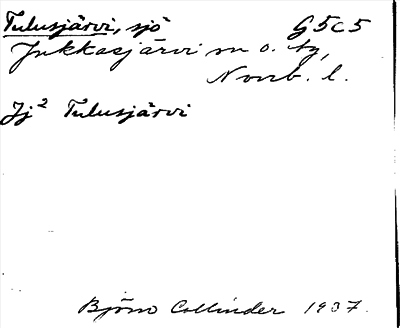 Tulusjärvi, sjö G5c5
Jukkasjärvi sn o. tg,
Norrb. l.
Jj² Tulusjärvi
Björn Collinder 1937.